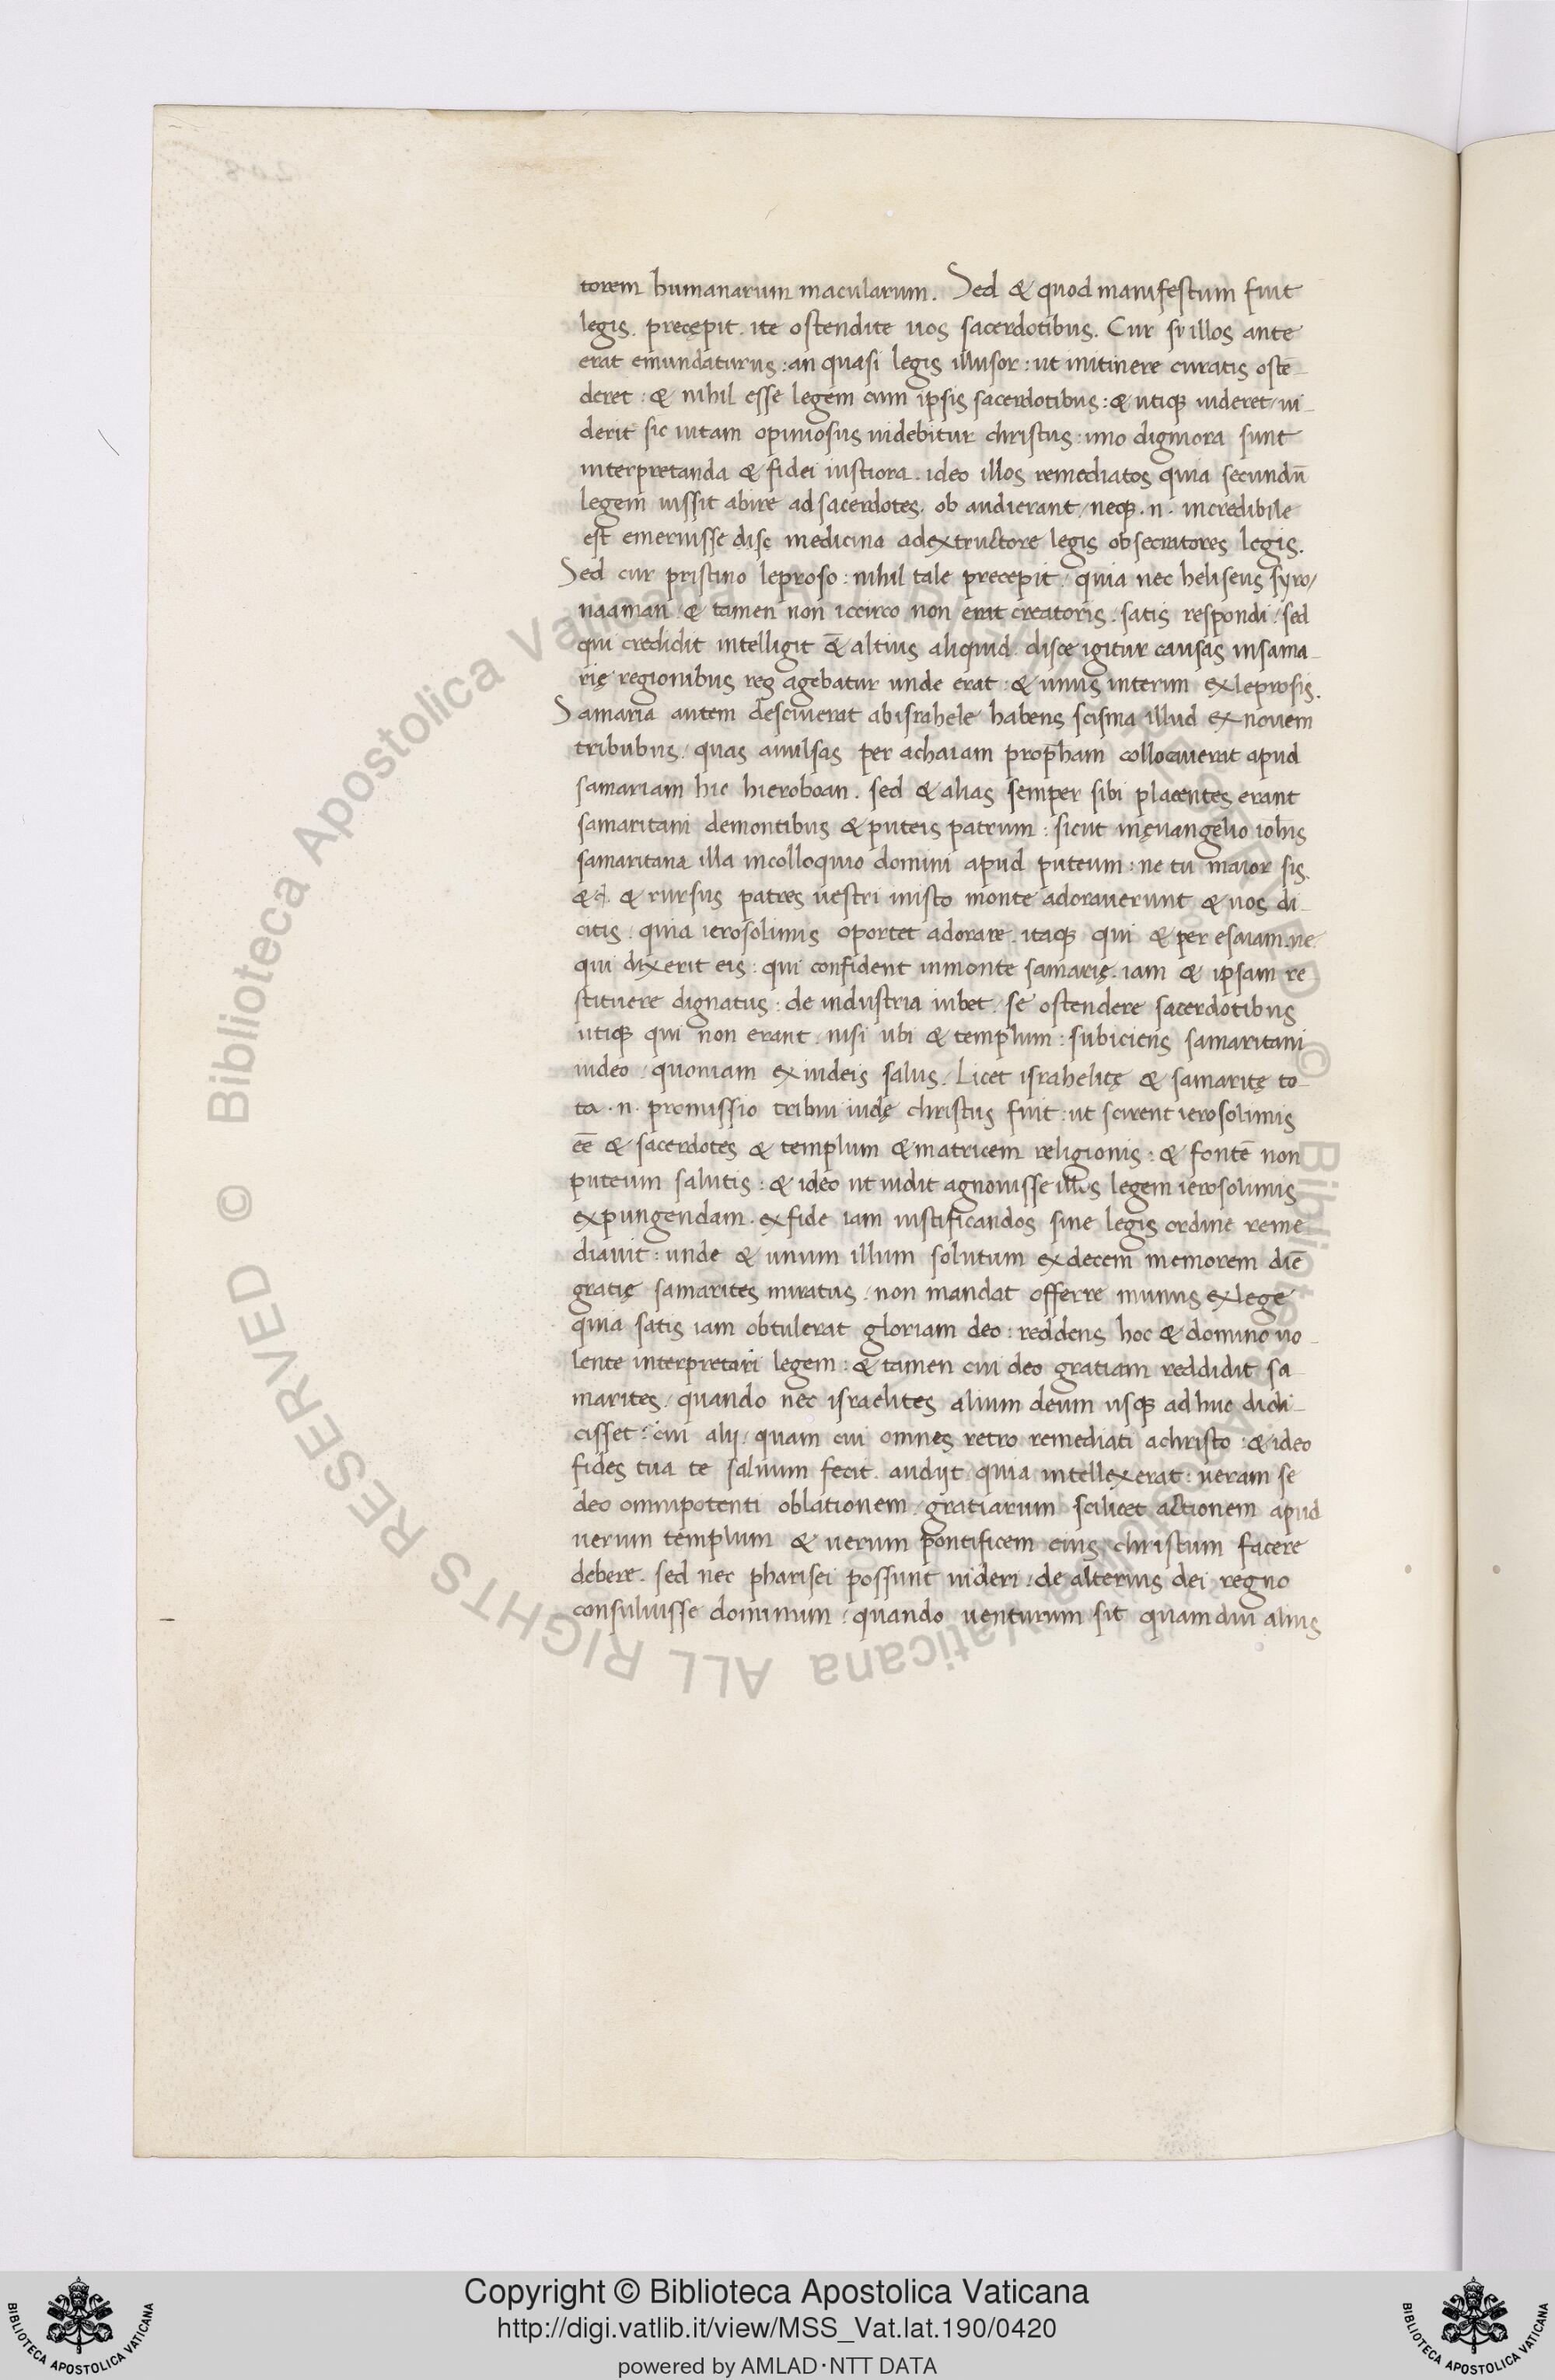 torem humanarum macularum. Sed & quod manifestum fuit
legis. precępit. ite ostendite uos sacerdotibus. Cur si illos ante
erat emundaturus: an quasi legis illusor: ut initinere curatis ostē-
deret: & nihil esse legem cum ipsis sacerdotibus: & utiq; uideret / ui-
derit sic uitam opiniosus uidebitur christus: imo digniora sunt
interpretanda & fidei iustiora. ideo illos remediatos quia secundū
legem iussit abire ad sacerdotes. ob audierant / neq;. n. incredibile
est emeruisse disc medicina adextructore legis obsecratores legis.
Sed cur pristino leproso: nihil tale precepit / quia nec heliseus syro /
naaman / & tamen non iccirco non erat creatoris. satis respondi / sed
qui credidit intelligit & altius aliquid. disce igitur causas insama-
rię regionibus res agebatur unde erat: & unus interim exleprosis.
Samaria autem desciuerat abisrahele habens scisma illud ex nouem
tribubus / quas auulsas per achaiam propħam collocauerat apud
samariam hic hieroboan. sed & alias semper sibi placentes erant
samaritani demontibus & puteis patrum: sicut inęuangelio iohis
samaritana illa incolloquio domini apud puteum: ne tu maior sis.
& rursus patres uestri inisto monte adorauerunt & uos di-
citis / quia ierosolimis oportet adorare. itaq; qui & per esaiam. ne
qui dixerit eis: qui confident inmonte samarię. iam & ipsam re
stituere dignatus: de industria iubet / se ostendere sacerdotibus
utiq; qui non erant / nisi ubi & templum: subiciens samaritani
iudeo / quoniam ex iudeis salus. Licet israhelitę & samaritę to-
ta. n. promissio tribui iudę christus fuit: ut scirent ierosolimis
eē & sacerdotes & templum & matricem religionis: & fontē non
puteum salutis: & ideo ut uidit agnouisse illos legem ierosolimis
expungendam. exfide iam iustificandos sine legis ordine reme
diauit: unde & unum illum solutum exdecem memorem diē
gratię samarites miratus / non mandat offerre munus exlege
quia satis iam obtulerat gloriam deo: reddens hoc & domino uo-
lente interpretari legem: & tamen cui deo gratiam reddidit sa-
marites / quando nec israelites alium deum usq; adhuc didi-
cisset: cui alij / quam cui omnes retro remediati achristo: & ideo
fides tua te saluum fecit. audijt quia intellexerat: ueram se
deo omnipotenti oblationem / gratiarum scilicet actionem apud
uerum templum & uerum pontificem eius christum facere
debere. sed nec pharisei possunt uideri: de alterius dei regno
consuluisse dominum / quando uenturum sit quamdiu alius
Biblioteca Apostolica Vaticana ALL RIGHTS RESERVED ©
Copyright © Biblioteca Apostolica Vaticana
http://digi.vatlib.it/view/MSS_Vat.lat.190/0420
powered by AMLAD·NTT DATA
BIBLIOTECA APOSTOLICA VATICANA
BIBLIOTECA APOSTOLICA VATICANA